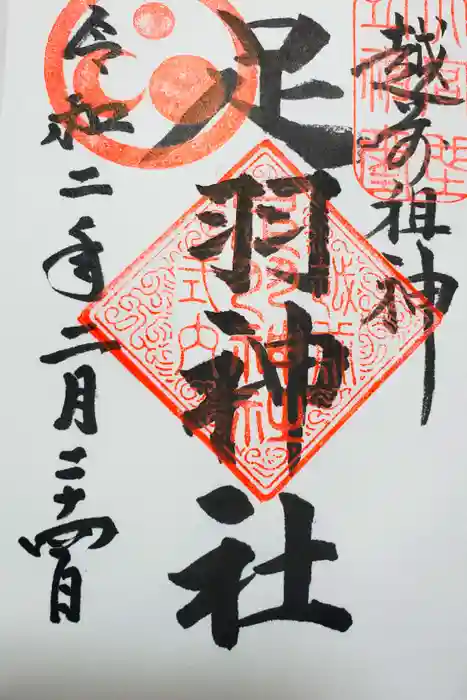 越の祖神
足羽神社
令和二年二月二十四日